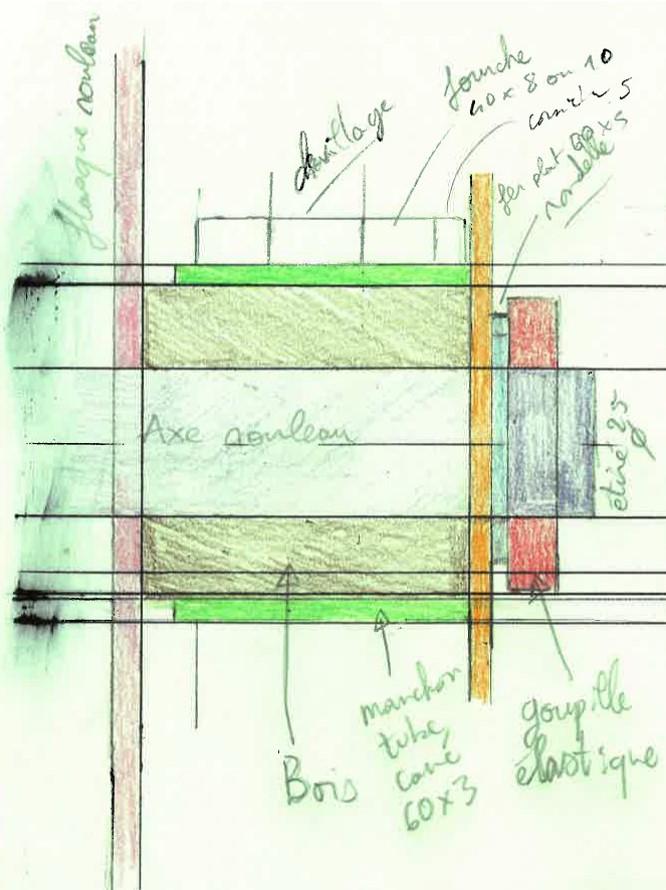 flasque rouleau
fourche
40 x 8 ou 10
cornière 5
fer plat 60 x 5
rondelle
Axe rouleau
étiré 25
Ø
Bois
manchon
tube
carré
60x3
goupille
élastique